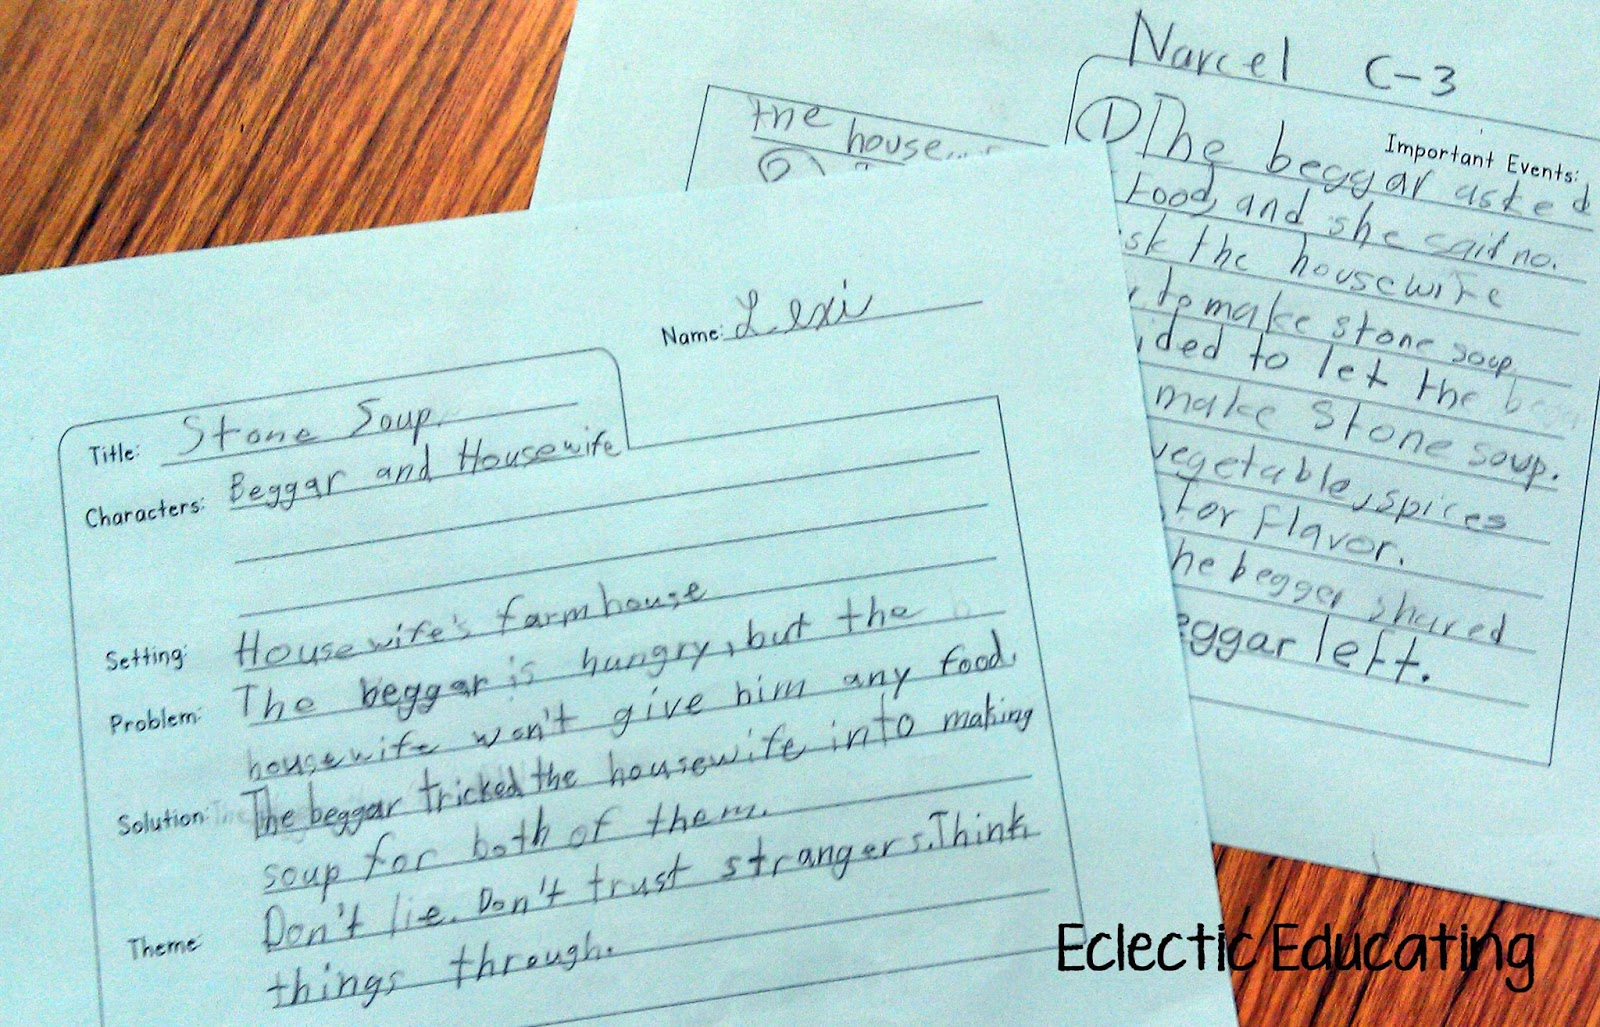 Narcel C-3
Important Events:
① The beggar asked
food, and she said no.
sk the housewife
to make stone soup
ided to let the
make Stone soup.
vegetable, spices
for flavor.
he beggar shared
eggar left.
the house....
Name: Lexi
Title: Stone Soup
Characters: Beggar and Housewife
Setting: Housewife's farmhouse
Problem: The beggar is hungry, but the
housewife won't give him any food.
Solution: The beggar tricked the housewife into making
soup for both of them.
Theme: Don't lie. Don't trust strangers. Think
things through.
Eclectic Educating